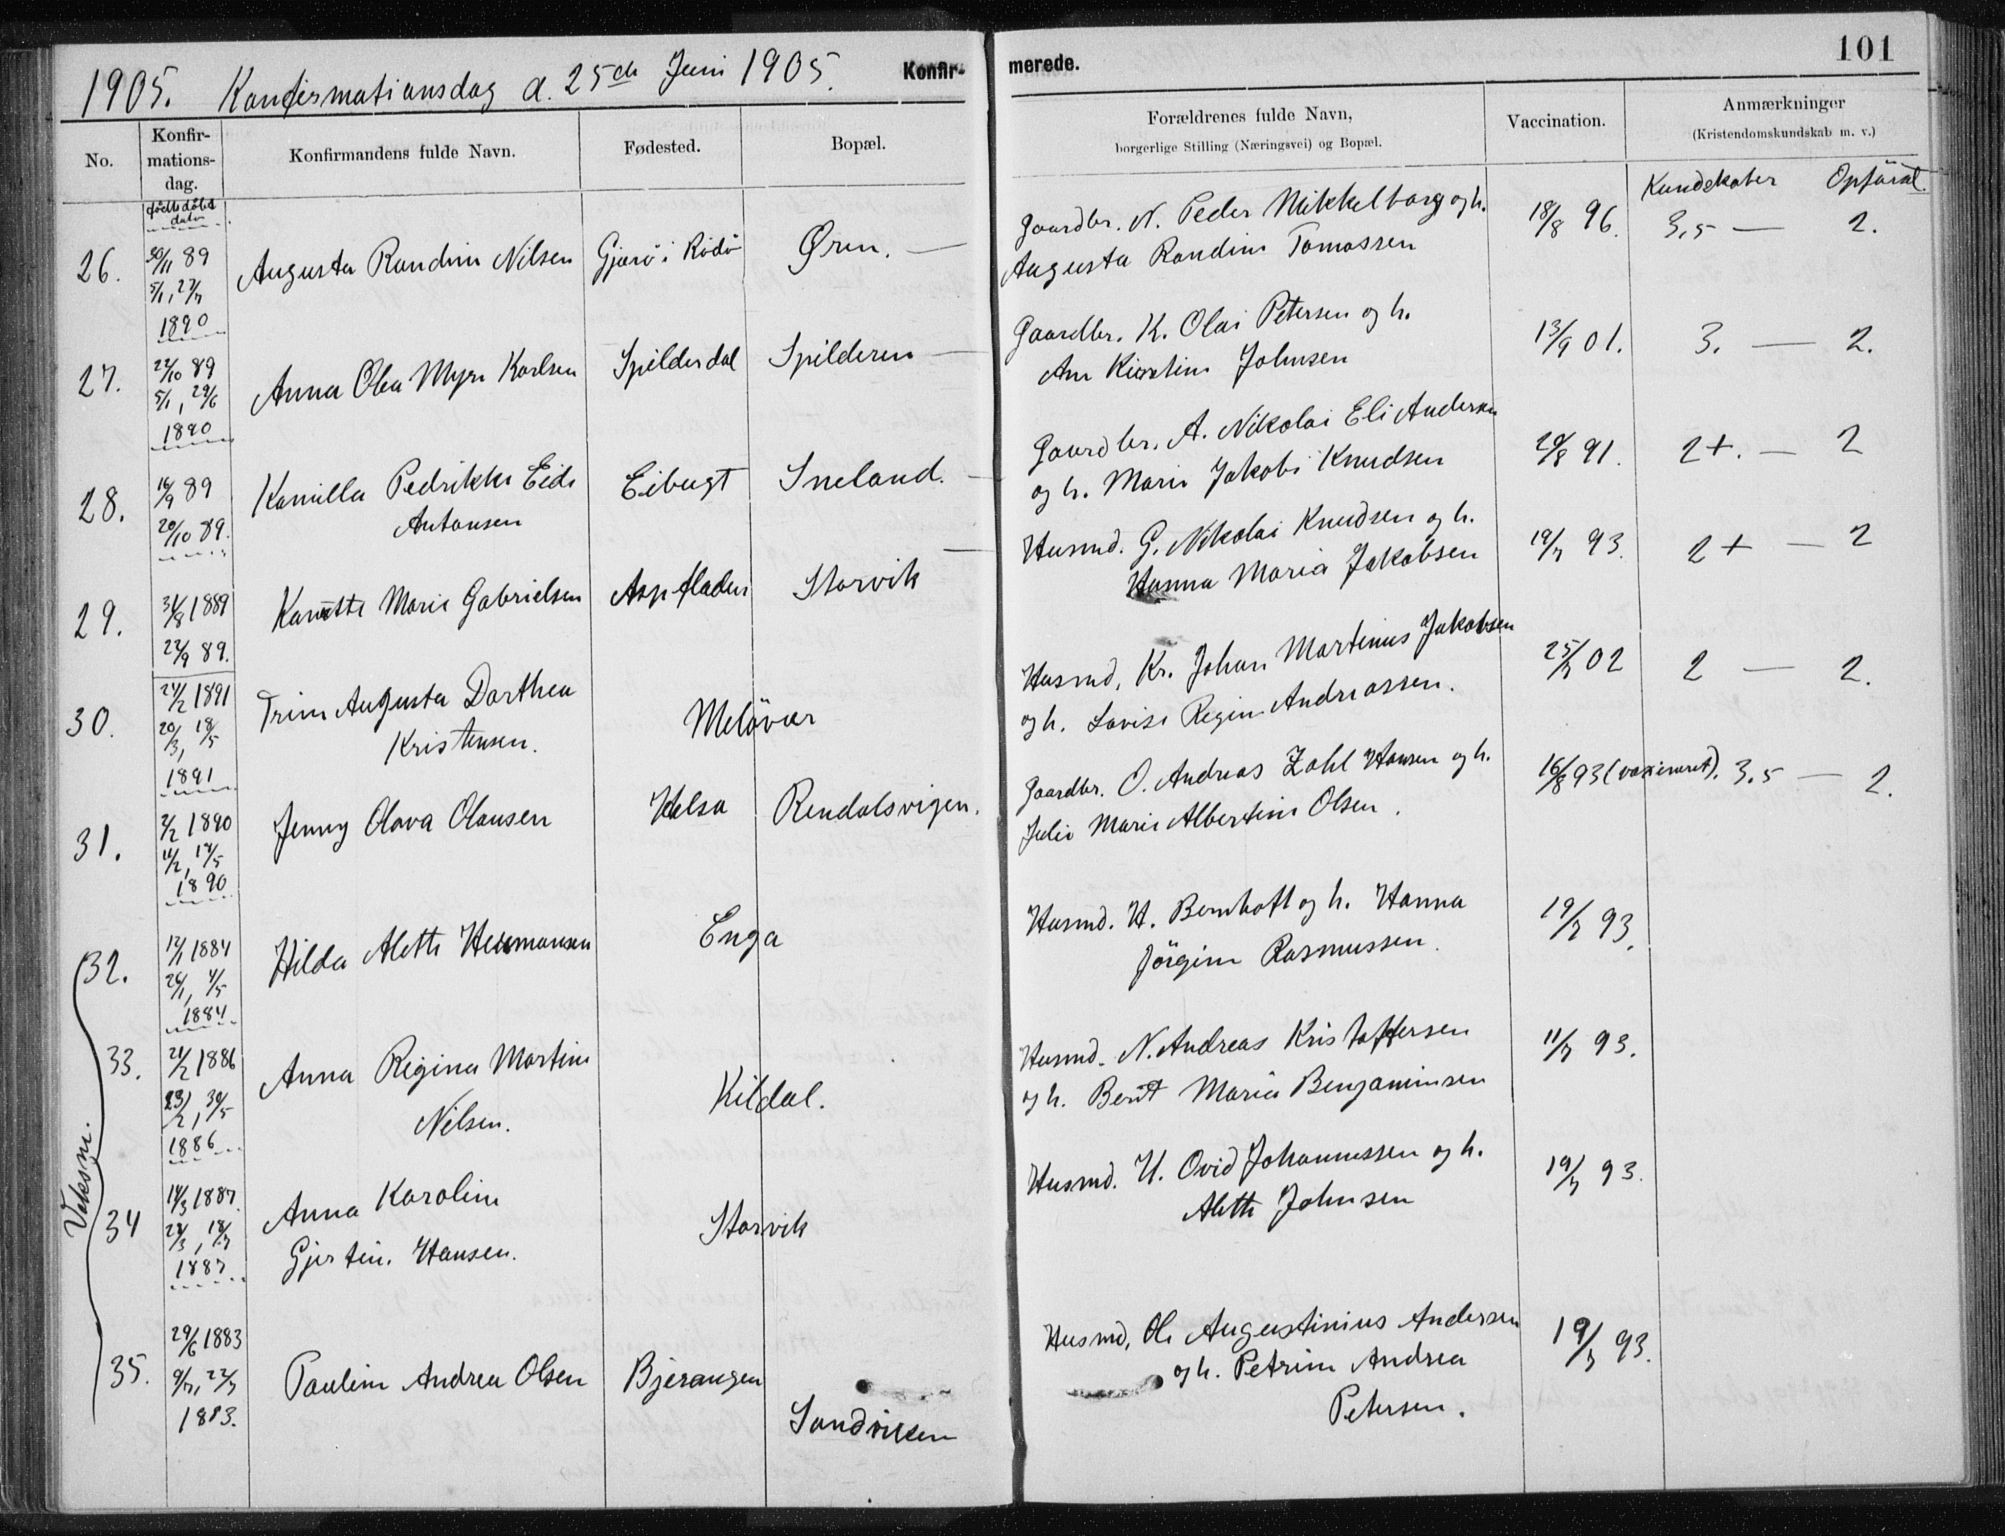 1905. Konfirmationsdag d. 25de Juni 1905.
Konfir-
merede.
101
No.
Konfir-
mations-
dag.
Konfirmandens fulde Navn.
Fødested.
Bopæl.
Forældrenes fulde Navn,
borgerlige Stilling (Næringsvei) og Bopæl.
Vaccination.
Anmærkninger
(Kristendomskundskab m. v.)
født døbt
dato
Kundskaber Opførsel.
26. 30/11 89 Augusta Randine Nilsen Gjærø i Rødø Øren. —
5/1, 27/7
1890
Gaardbr. N. Peder Mikkelborg og h. 18/8 96. 3,5 — 2.
Augusta Randine Tomassen
27. 22/10 89 Anna Olea Myre Karlsen Spilderdal Spilderen —
5/1, 29/6
1890
Gaardbr. K. Olai Petersen og h. 13/9 01. 3. — 2.
Ane Kirstine Johnsen
28. 16/9 89 Kamilla Pedrikke Eide Eibugt Sneland. —
20/10 89. Antonsen
Gaardbr. A. Nikolai Eli Andersen 20/8 91. 2+. — 2
og h. Marie Jakobe Knudsen
29. 31/8 1889 Kanutte Marie Gabrielsen Aspfladen Storvik
22/9 89.
Husmd. G. Nikolai Knudsen og h. 19/7 93. 2+ — 2
Hanna Maria Jakobsen
30. 24/2 1891 Trine Augusta Dorthea Meløvær
20/3, 18/5 Kristensen.
1891
Husmd. Kr. Johan Martinus Jakobsen 25/7 02 2 — 2.
og h. Lovise Regine Andreassen.
31. 2/2 1890 Jenny Olava Olausen Halsa Rendalsvigen.
11/2, 17/5
1890
Gaardbr. O. Andreas Zahl Hansen og h. 16/8 93 (vaxineret). 3,5 — 2.
Julie Marie Albertine Olsen.
32. 12/1 1884 Hilda Alette Hermansen Enga
26/1, 4/5
1884
Husmd. H. Bernhoft og h. Hanna 19/7 93.
Jørgine Rasmussen.
33. 21/2 1886 Anna Regina Martine Kildal.
23/2, 30/5 Nilsen.
1886
Husmd. N. Andreas Kristoffersen 11/7 93.
og h. Berit Maria Benjaminsen
Voksne.
34 14/3 1887. Anna Karoline Storvik
28/3, 18/7 Gjertine Hansen.
1887
Husmd. H. Ovid Johannessen og h. 19/7 93.
Alette Johnsen
35. 29/6 1883 Pauline Andrea Olsen Bjerangen
9/7, 22/7
1883. Sandviken
Husmd. Ole Augustinius Andersen 19/7 93.
og h. Petrine Andrea
Petersen.